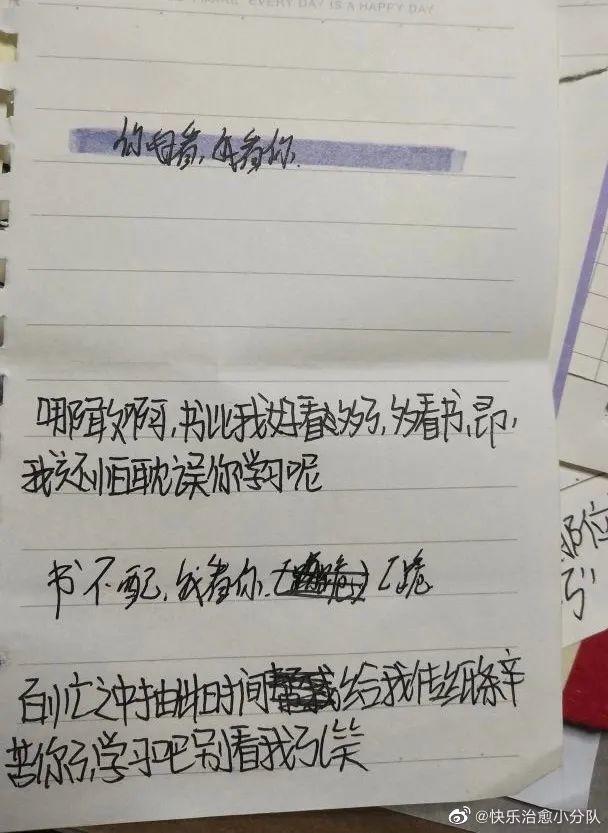 EVERY DAY IS A HAPPY DAY
你看,我看你.
哪敢啊,书比我好看多了,多看书,昂,
我还怕耽误你学习呢
书不配,我看你. [跪
百忙之中抽出时间给我传纸条辛
苦你了,学习吧别看我了(笑
位
@快乐治愈小分队